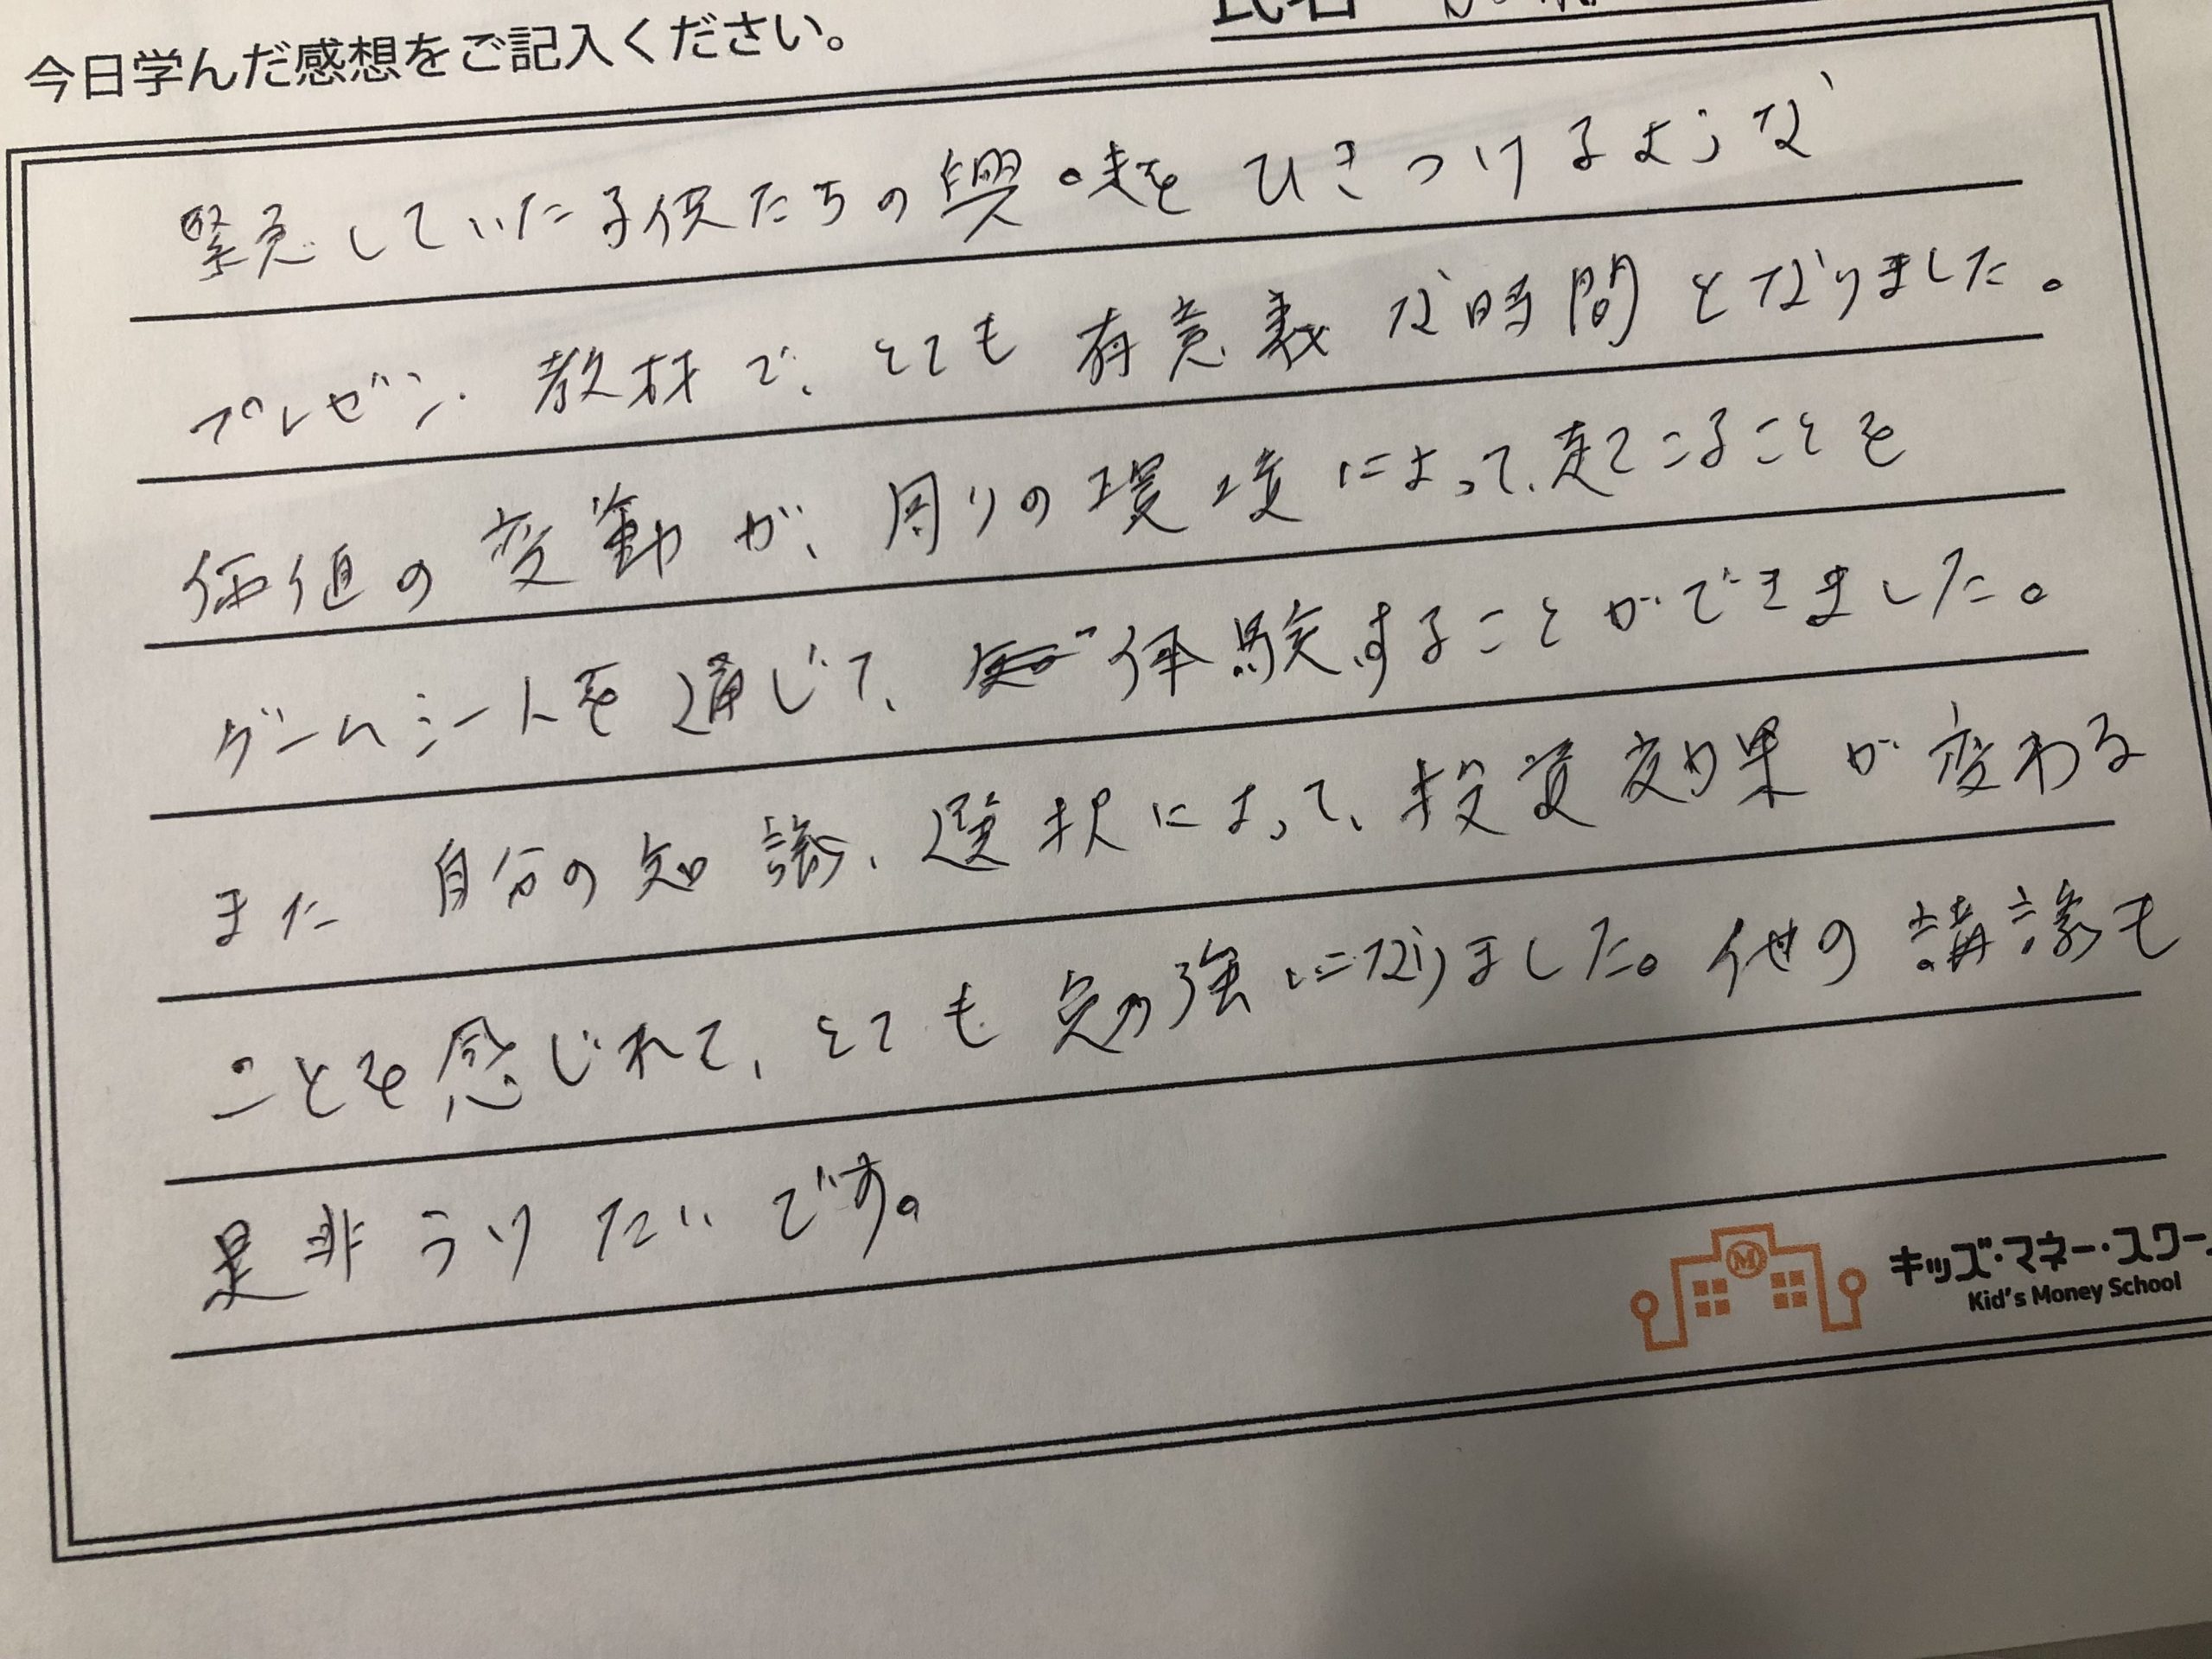 氏名
今日学んだ感想をご記入ください。
緊急していた子供たちの興味をひきつけるような
プレゼン・教材で、とても有意義な時間となりました。
価値の変動が、周りの環境によって、起こることを
ゲームシートを通じて、体験することができました。
また 自分の知識、選択によって、投資効果が変わる
ことを感じれて、とても勉強になりました。他の講義も
是非うけたいです。
M
キッズ・マネー・スクー
Kid's Money School